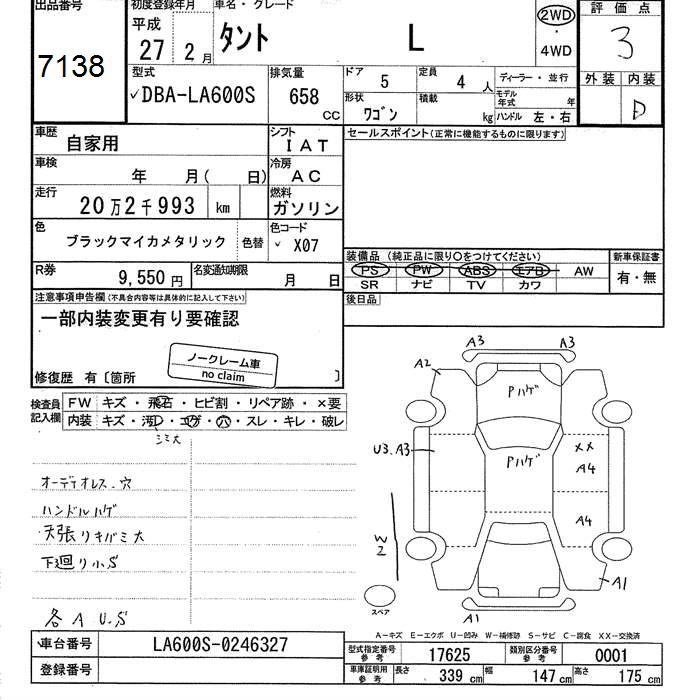 出品番号
7138
初度登録年月
平成 27年 2月
車名・グレード
タント L
2WD
・
4WD
評価点
3
外装 内装
D
型式
✓DBA-LA600S
排気量
658 CC
ドア 5
定員 4 人
形状 ワゴン
積載 kg
ディーラー・並行
モデル年式 年
ハンドル 左・右
車歴 自家用
シフト IAT
車検 年 月( 日)
冷房 AC
走行 20万2千993 km
燃料 ガソリン
色 ブラックマイカメタリック 色替
色コード ✓ X07
R券 9,550円
名変通知期限 月 日
セールスポイント(正常に機能するものに限ります)
装備品(純正品に限り○をつけてください)
PS PW ABS エアB AW
SR ナビ TV カワ
新車保証書
有・無
後日品
注意事項申告欄(不具合内容等は具体的に記入して下さい)
一部内装変更有り要確認
ノークレーム車
no claim
修復歴 有〔箇所 〕
検査員記入欄
FW キズ・飛石・ヒビ割・リペア跡・×要
内装 キズ・汚・コゲ・穴・スレ・キレ・破レ
シミ大
オーディオレス・穴
ハンドルハゲ
天張リキバミ大
下廻り小S
各 A U.S
A3 A3
A2
Pハゲ
U3.A3
Pハゲ
XX
A4
A4
W2
A1
A1
スペア
A－キズ E－エクボ U－凹み W－補修跡 S－サビ C－腐食 XX－交換済
車台番号 LA600S-0246327
登録番号
型式指定番号 参考 17625
類別区分番号 参考 0001
車庫証明用 参考 長さ 339 cm 幅 147 cm 高さ 175 cm